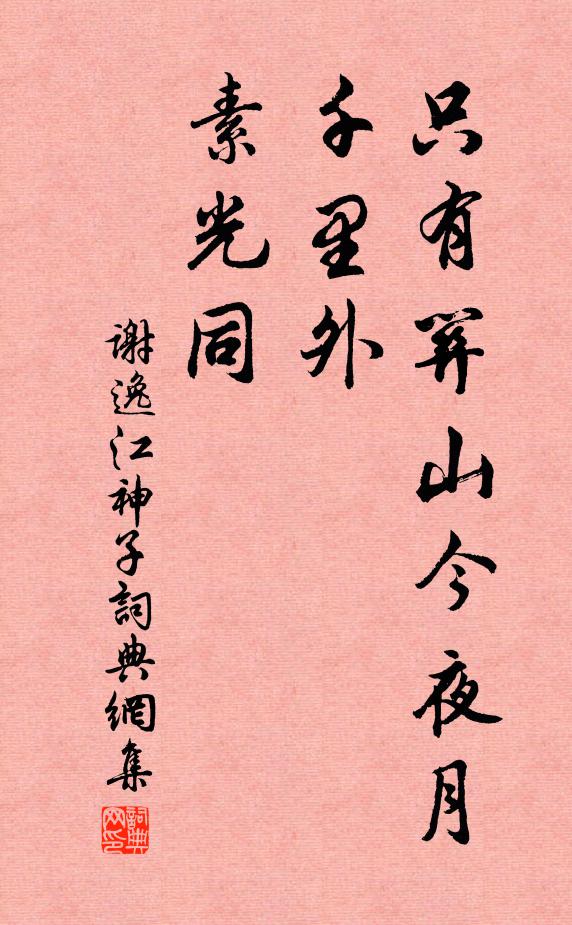 只有關山今夜月
千里外
素光同
謝逸江神子詞典網集
詞典
网印